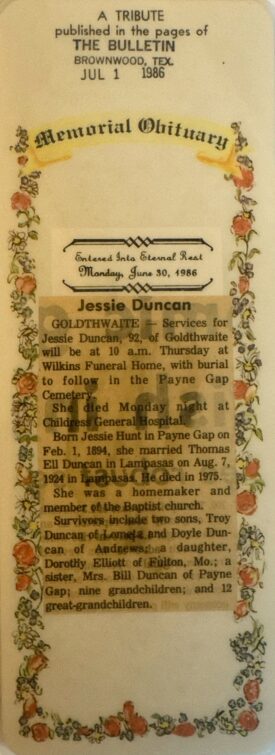 A TRIBUTE
published in the pages of
THE BULLETIN
BROWNWOOD, TEX.
JUL 1 1986
Memorial Obituary
Entered Into Eternal Rest
Monday, June 30, 1986
Jessie Duncan
GOLDTHWAITE — Services for
Jessie Duncan, 92, of Goldthwaite
will be at 10 a.m. Thursday at
Wilkins Funeral Home, with burial
to follow in the Payne Gap
Cemetery.
She died Monday night at
Childress General Hospital.
Born Jessie Hunt in Payne Gap on
Feb. 1, 1894, she married Thomas
Ell Duncan in Lampasas on Aug. 7,
1924 in Lampasas. He died in 1975.
She was a homemaker and
member of the Baptist church.
Survivors include two sons, Troy
Duncan of Lometa and Doyle Dun-
can of Andrews; a daughter,
Dorothy Elliott of Fulton, Mo.; a
sister, Mrs. Bill Duncan of Payne
Gap; nine grandchildren; and 12
great-grandchildren.